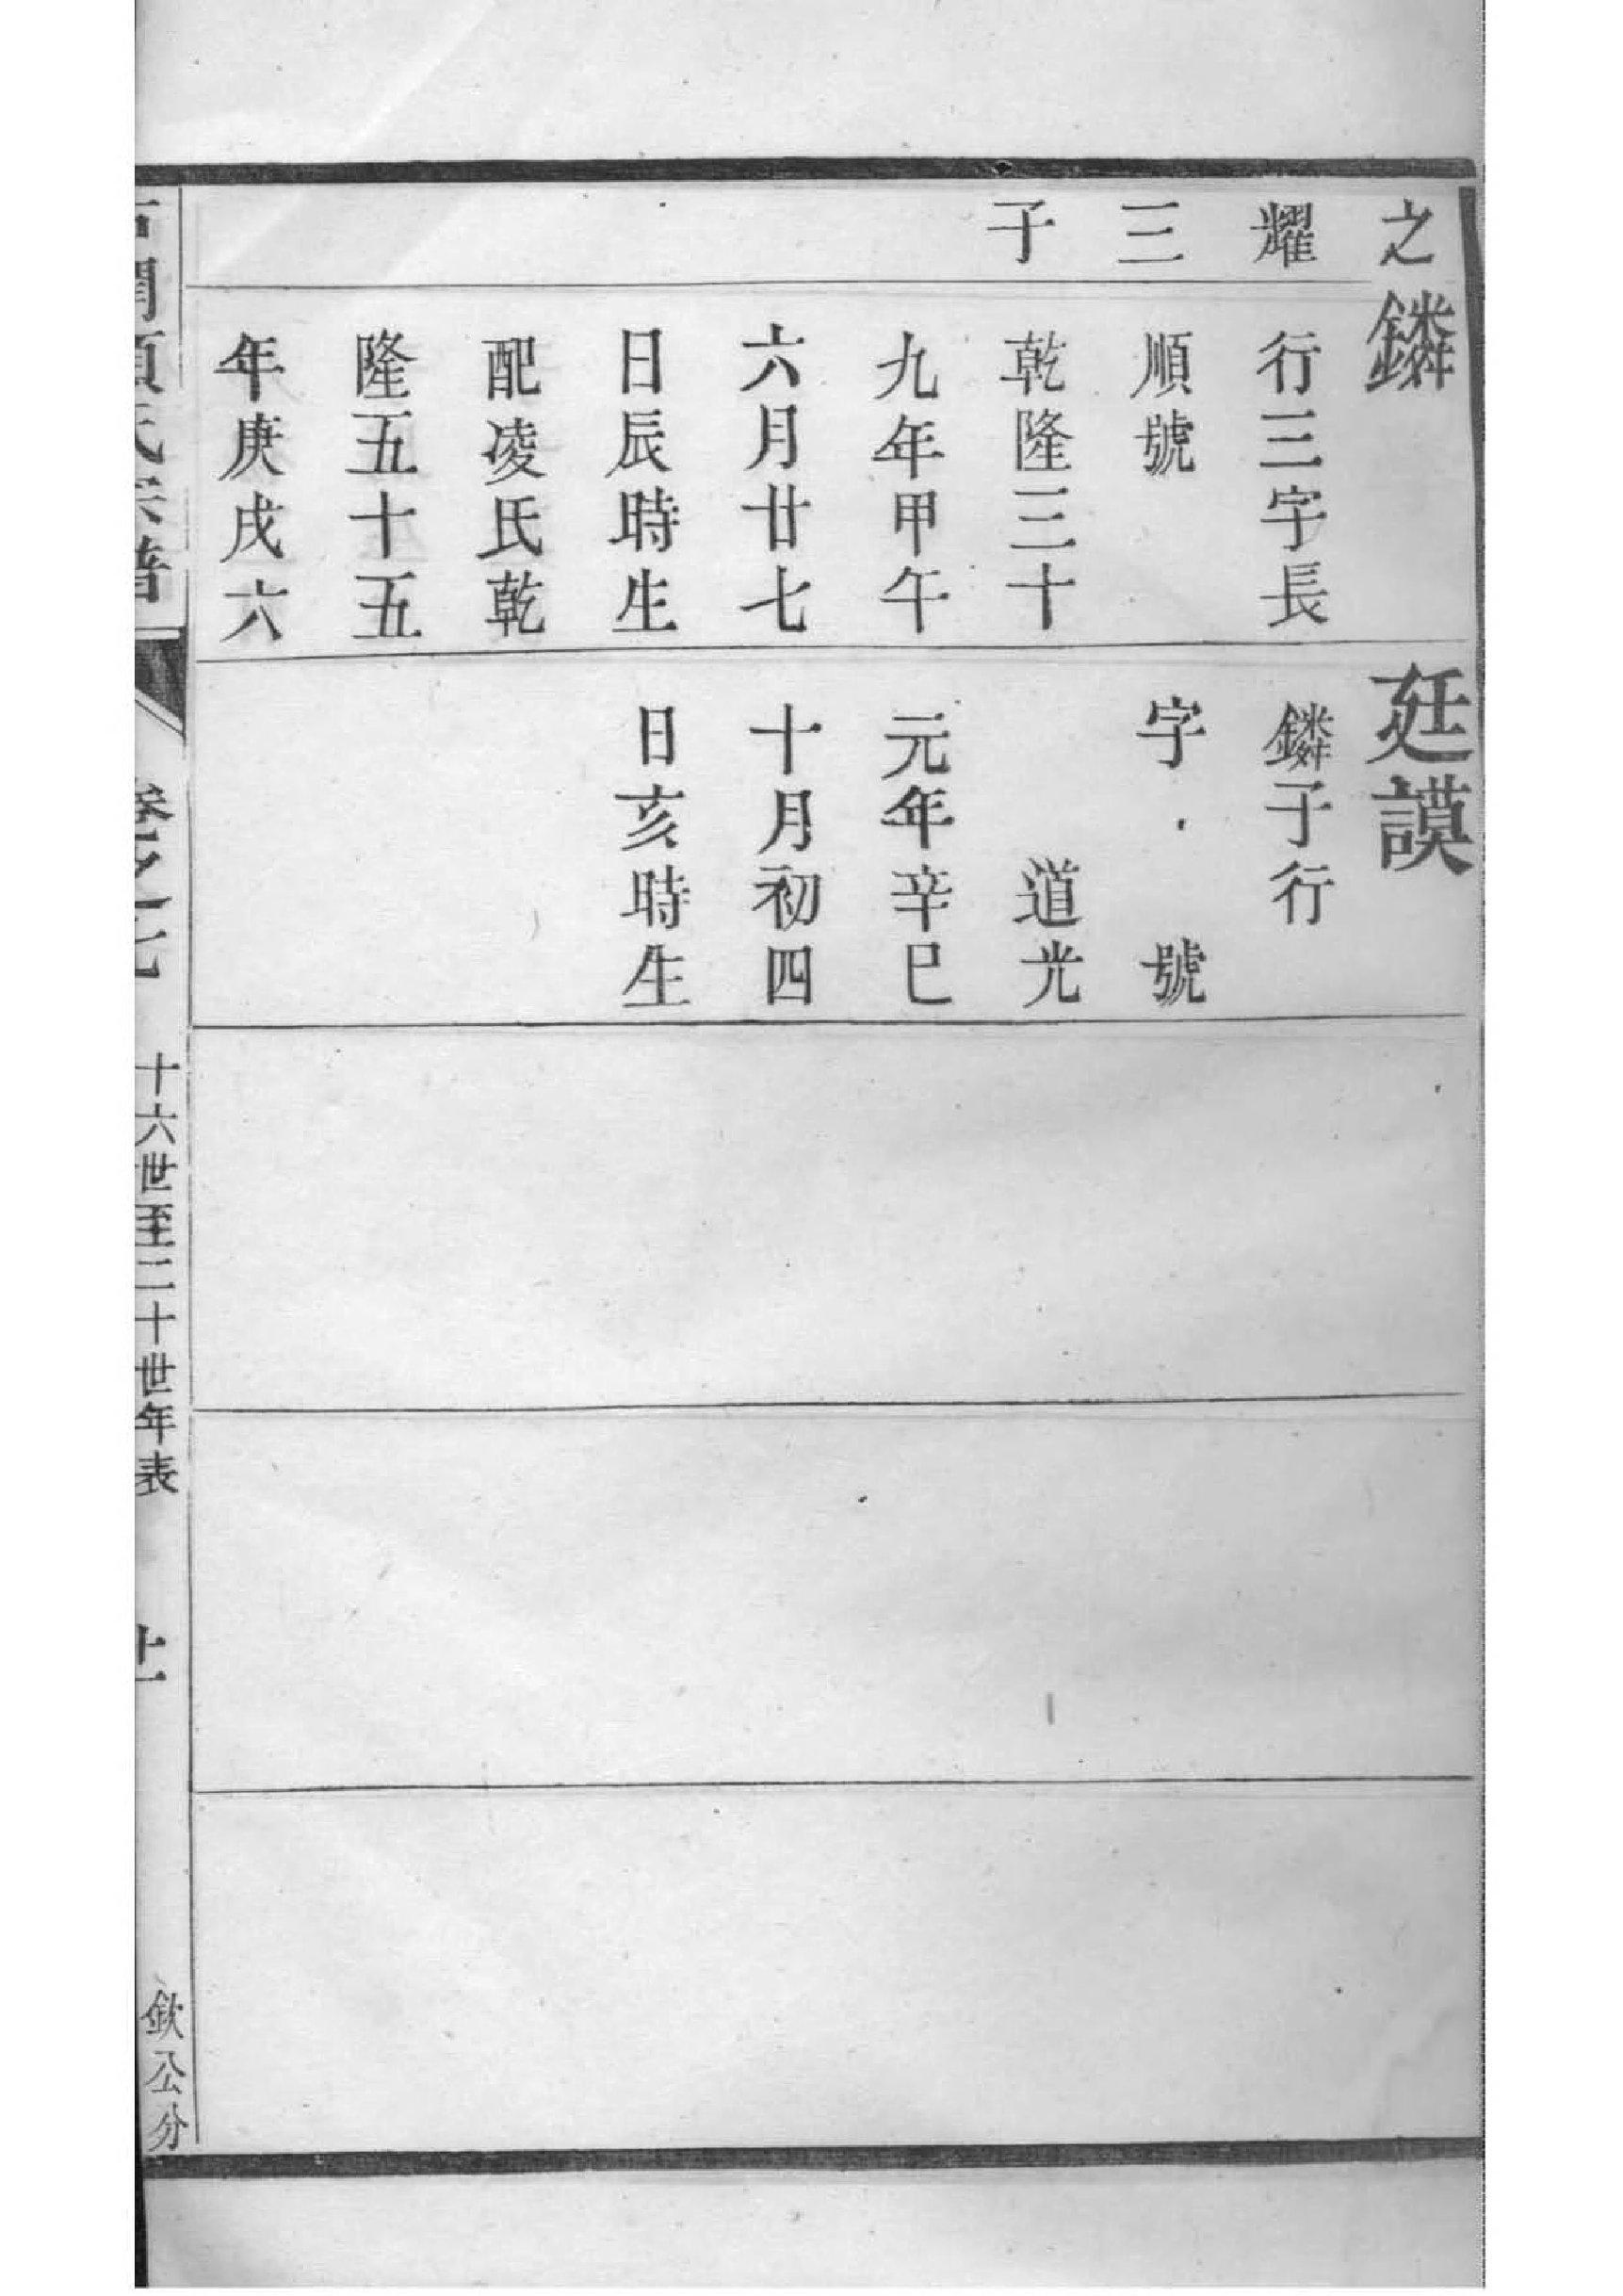 之
耀
三
子
鏻
行三字長
順號
乾隆三十
九年甲午
六月廿七
日辰時生
配凌氏乾
隆五十五
年庚戌六
廷謨
鏻子行
字 號
道光
元年辛巳
十月初四
日亥時生
項氏宗譜
卷之七
十六世至二十世年表
廿一
欽公分